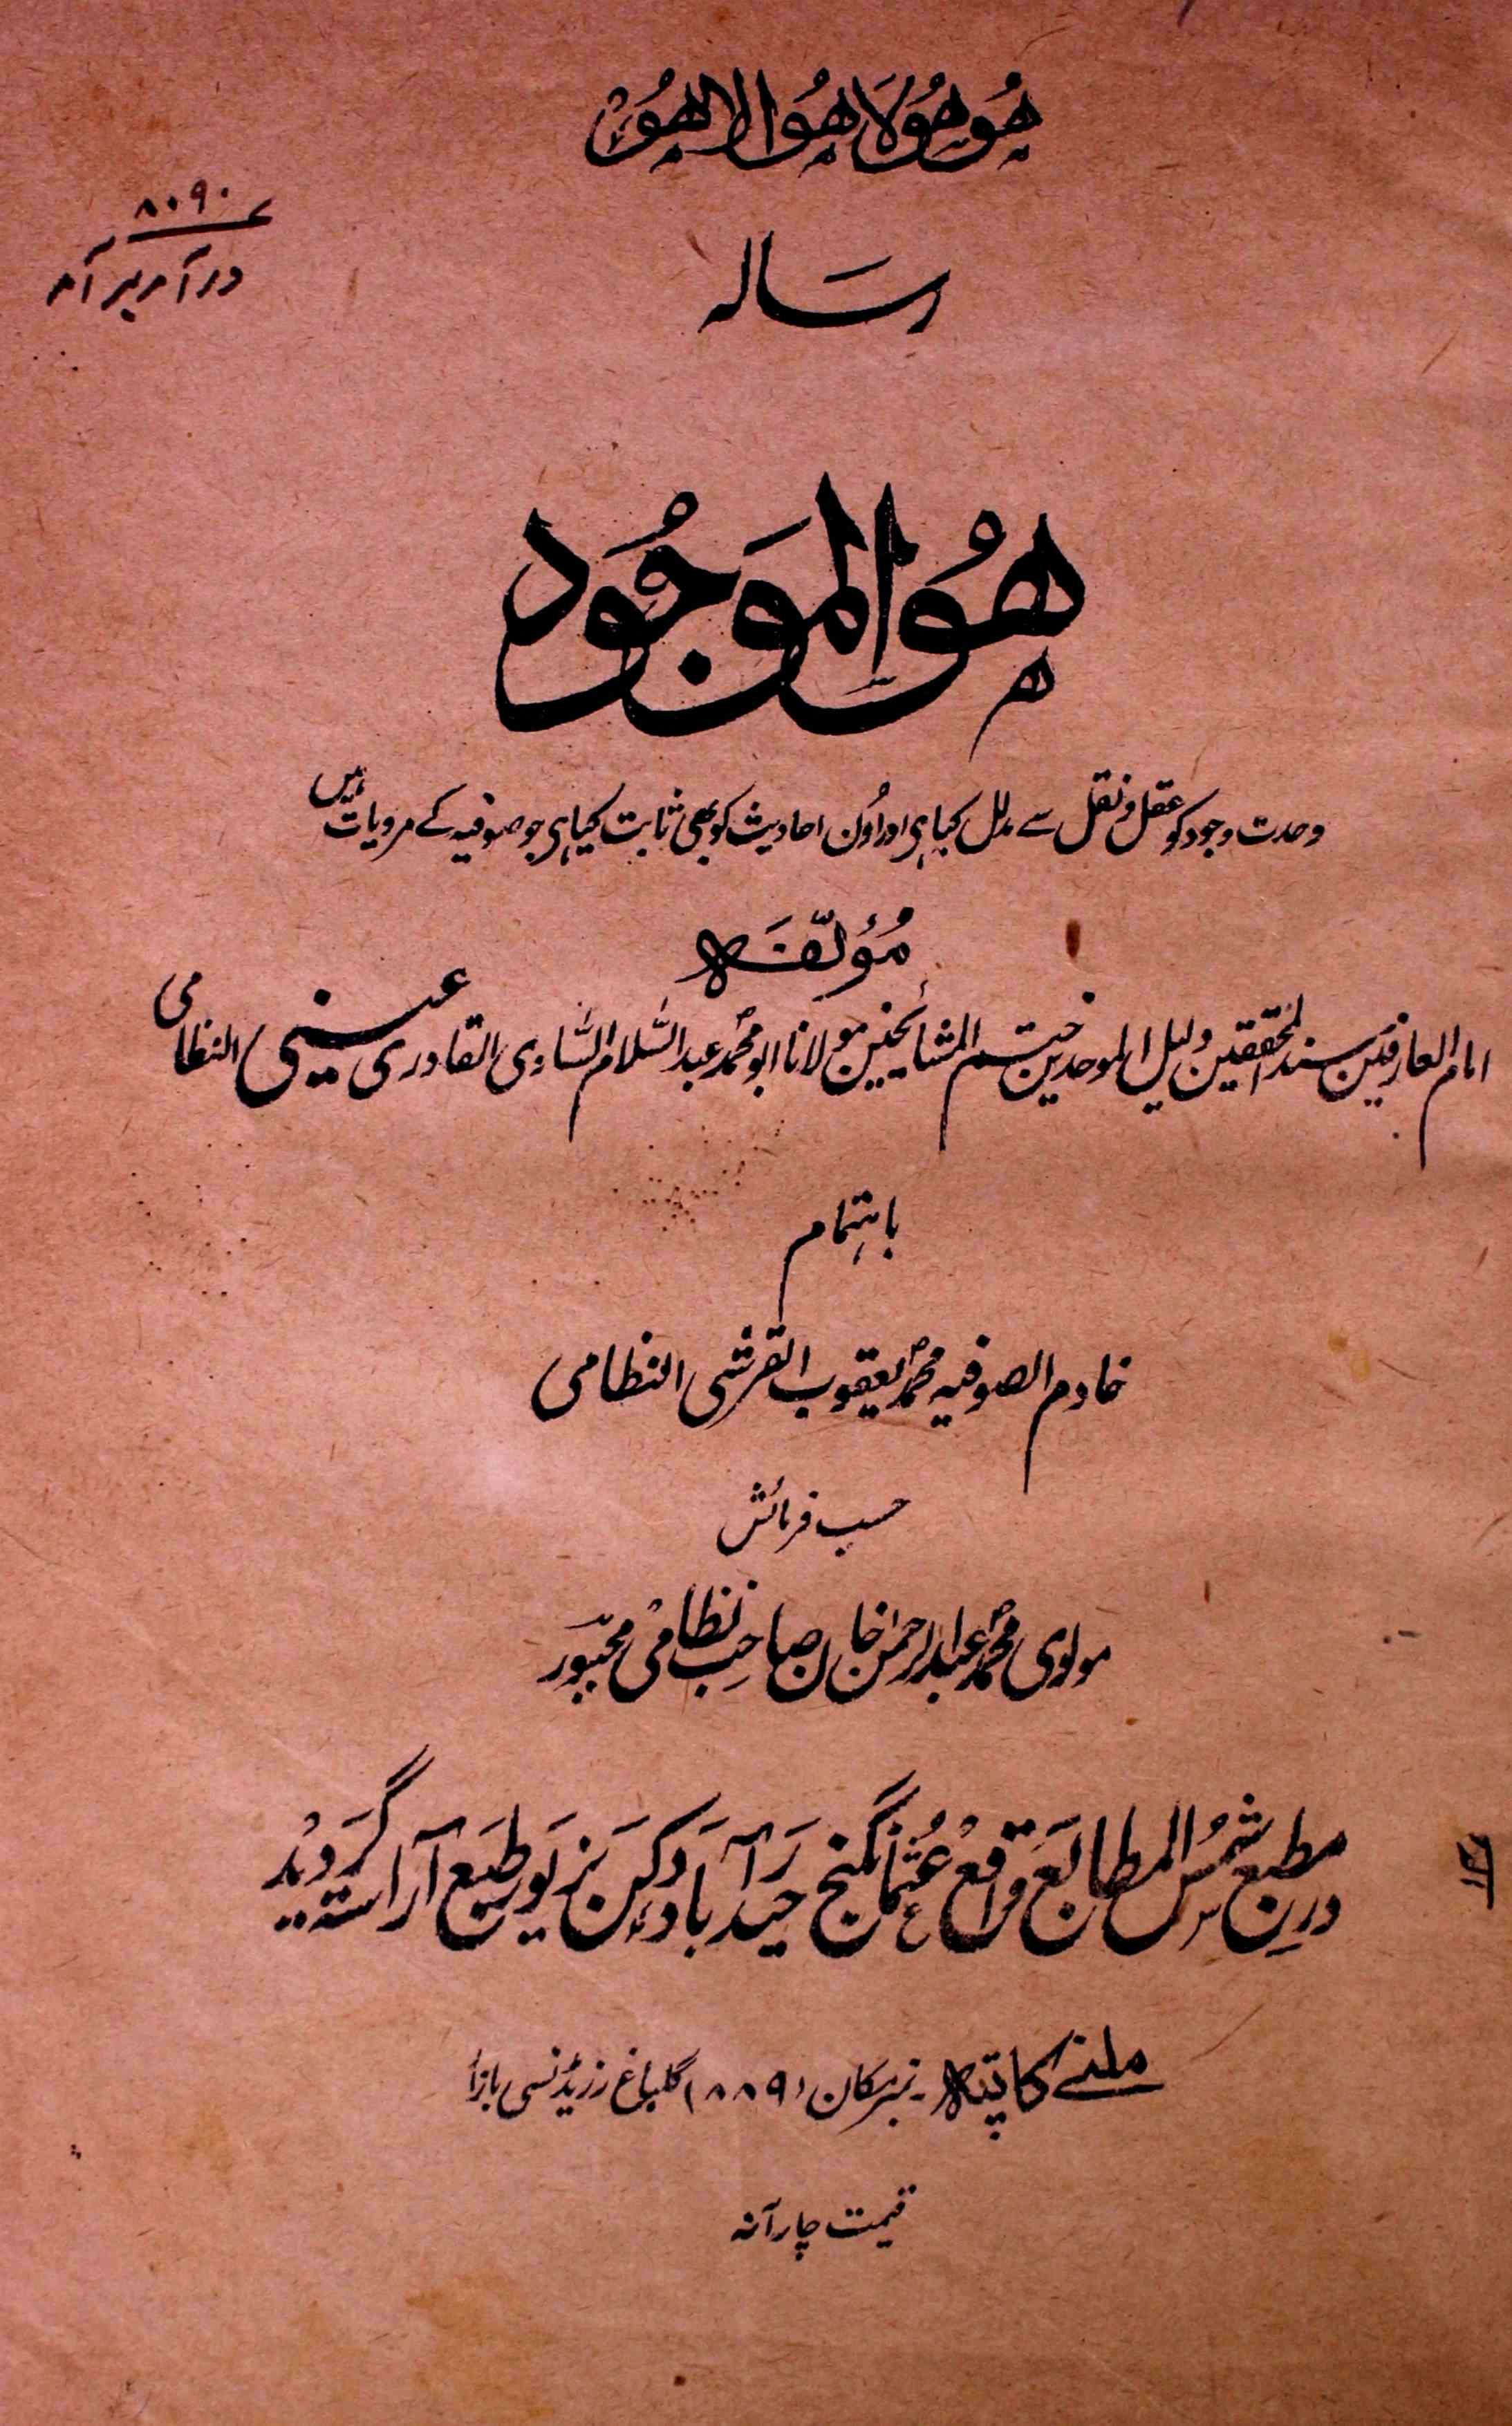 هُو هُو لَا هُو الا هُو
۸۰۹۰
در آمد بر آمد
رسَالہ
هُوالموَجُود
وحدت وجود کو عقل و نقل سے مدلل کیا ہی اور اُون احادیث کو بھی ثابت کیا ہی جو صوفیہ کے مرویات ہیں
مُؤلّفَہ
امام العارفین سند المحققین دلیل الموحدین ختم المشائخین مولانا ابو محمد عبد السَّلام السَّاوی القادری عینی النظامی
باہتمام
خادم الصوفیہ محمد یعقوب القرشی النظامی
حسب فرمائش
مولوی محمد عبد الرحمٰن خان صاحب نظامی
درین مطبع شمسُ المطابع واقع عُثمان گنج حیدرآباد دکن بزیور طبع آراستہ گردید
ملنے کا پتہ ۔ نمبر مکان (۸۸۹) گلباغ رزیڈنسی بازار
قیمت چار آنہ